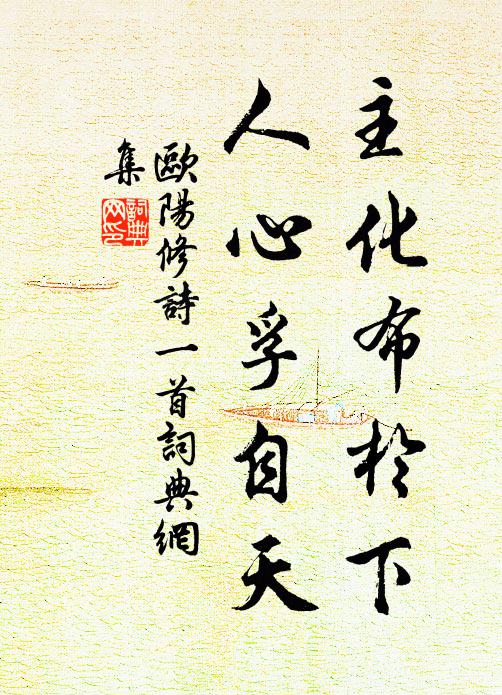 主化布於下
人心孚自天
歐陽修詩一首詞典網
集
詞典
网印